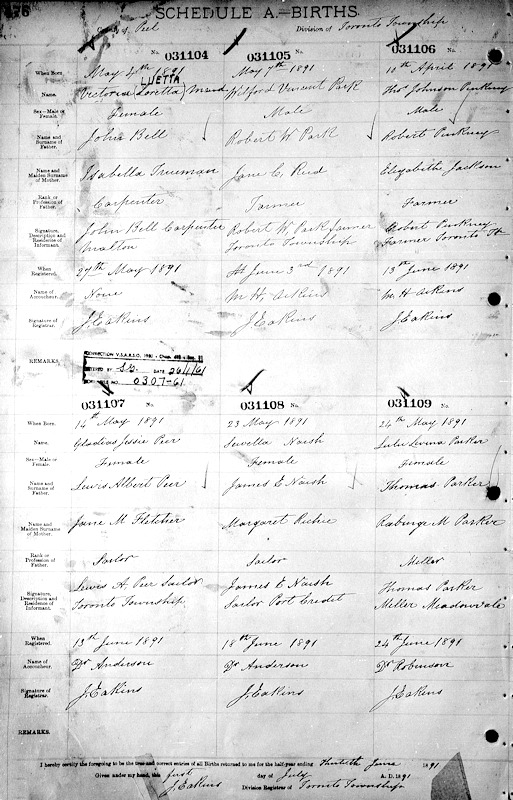 SCHEDULE A.—BIRTHS.
County of Peel Division of Toronto Township
No. 031104 No. 031105 No. 031106
When Born. May 4th 1891 May 7th 1891 11th April 1891
LUETTA
Name. Victoria (Loretta) Maud Wilford Vincent Park Thos Johnson Pinkney
Sex—Male or Female. Female Male Male
Name and Surname of Father. John Bell Robert W Park Robert Pinkney
Name and Maiden Surname of Mother. Isabella Trueman Jane C. Reid Elizabeth Jackson
Rank or Profession of Father. Carpenter Farmer Farmer
Signature, Description and Residence of Informant. John Bell Carpenter Robert W. Park farmer Robert Pinkney
Malton Toronto Township Farmer Toronto Tp
When Registered. 27th May 1891 June 3rd 1891 13th June 1891
Name of Accoucheur. None M H. Aikins M H Aikins
Signature of Registrar. J. Eakins J. Eakins J. Eakins
REMARKS.
CORRECTION V.S.A. R.S.O. 1960 - Chap. Sec.
BY S.G. DATE 26/4/61
NO. 0307-61
031107 No. 031108 No. 031109
When Born. 14th May 1891 23 May 1891 24th May 1891
Name. Gladias Jessie Peer Luvella Naish Lulu Levina Parker
Sex—Male or Female. Female Female Female
Name and Surname of Father. Lewis Albert Peer James E Naish Thomas Parker
Name and Maiden Surname of Mother. Jane M Fletcher Margaret Richie M Parker
Rank or Profession of Father. Sailor Sailor Miller
Signature, Description and Residence of Informant. Lewis A. Peer Sailor James E Naish Thomas Parker
Toronto Township Sailor Port Credit Miller Meadowvale
When Registered. 13th June 1891 18th June 1891 24th June 1891
Name of Accoucheur. Dr Anderson Dr Anderson Dr Robinson
Signature of Registrar. J. Eakins J. Eakins J. Eakins
REMARKS.
I hereby certify the foregoing to be the true and correct entries of all Births returned to me for the half-year ending Thirtieth June 1891
Given under my hand, this first day of July A.D. 1891
J. Eakins Division Registrar of Toronto Township